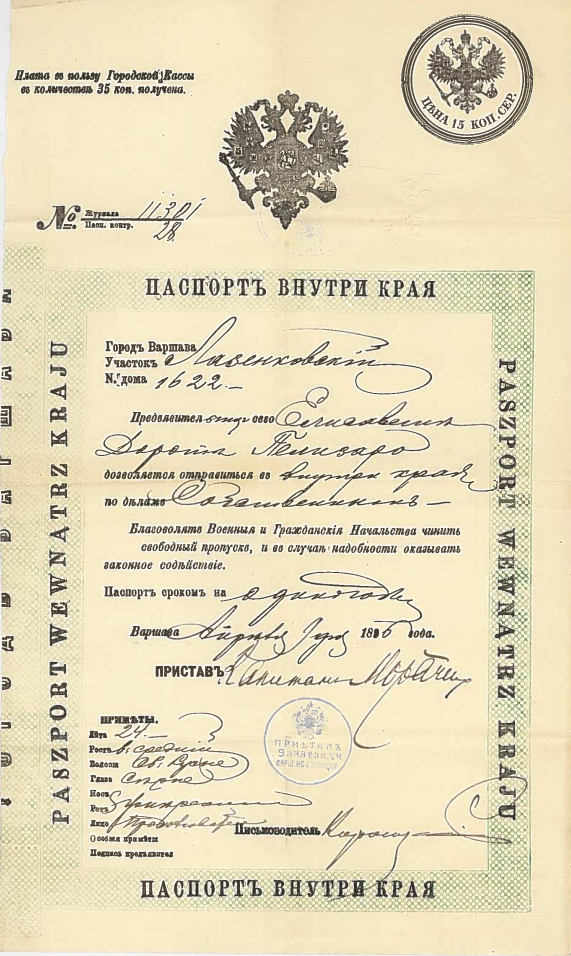 Плата въ пользу Городской Кассы
въ количествѣ 35 коп. получена.
ЦѢНА 15 КОП. СЕР.
№ Журнала 11301
Пасп. контр. 28
ПАСПОРТЪ ВНУТРИ КРАЯ
PASZPORT WEWNĄTRZ KRAJU
PASZPORT WEWNĄTRZ KRAJU
Городъ Варшава
Участокъ Лазенковскій
N. дома 1622.
Предъявитель сего Елисавета
Дорота
дозволяется отправиться въ внутри края
по дѣламъ Собственнымъ
Благоволятъ Военныя и Гражданскія Начальства чинить
свободный пропускъ, и въ случаѣ надобности оказывать
законное содѣйствіе.
Паспортъ срокомъ на одинъ годъ
Варшава Апрѣля дня 18 года.
ПРИСТАВЪ Капитанъ
ПРИМѢТЫ.
Лѣта 24
Ростъ средній
Волосы Св. Русые
Глаза Сѣрые
Носъ
Ротъ умѣренный
Лице Продолговатое
Особыя примѣты
Подпись предъявителя
ПРИСТАВЪ
Письмоводитель
ПАСПОРТЪ ВНУТРИ КРАЯ